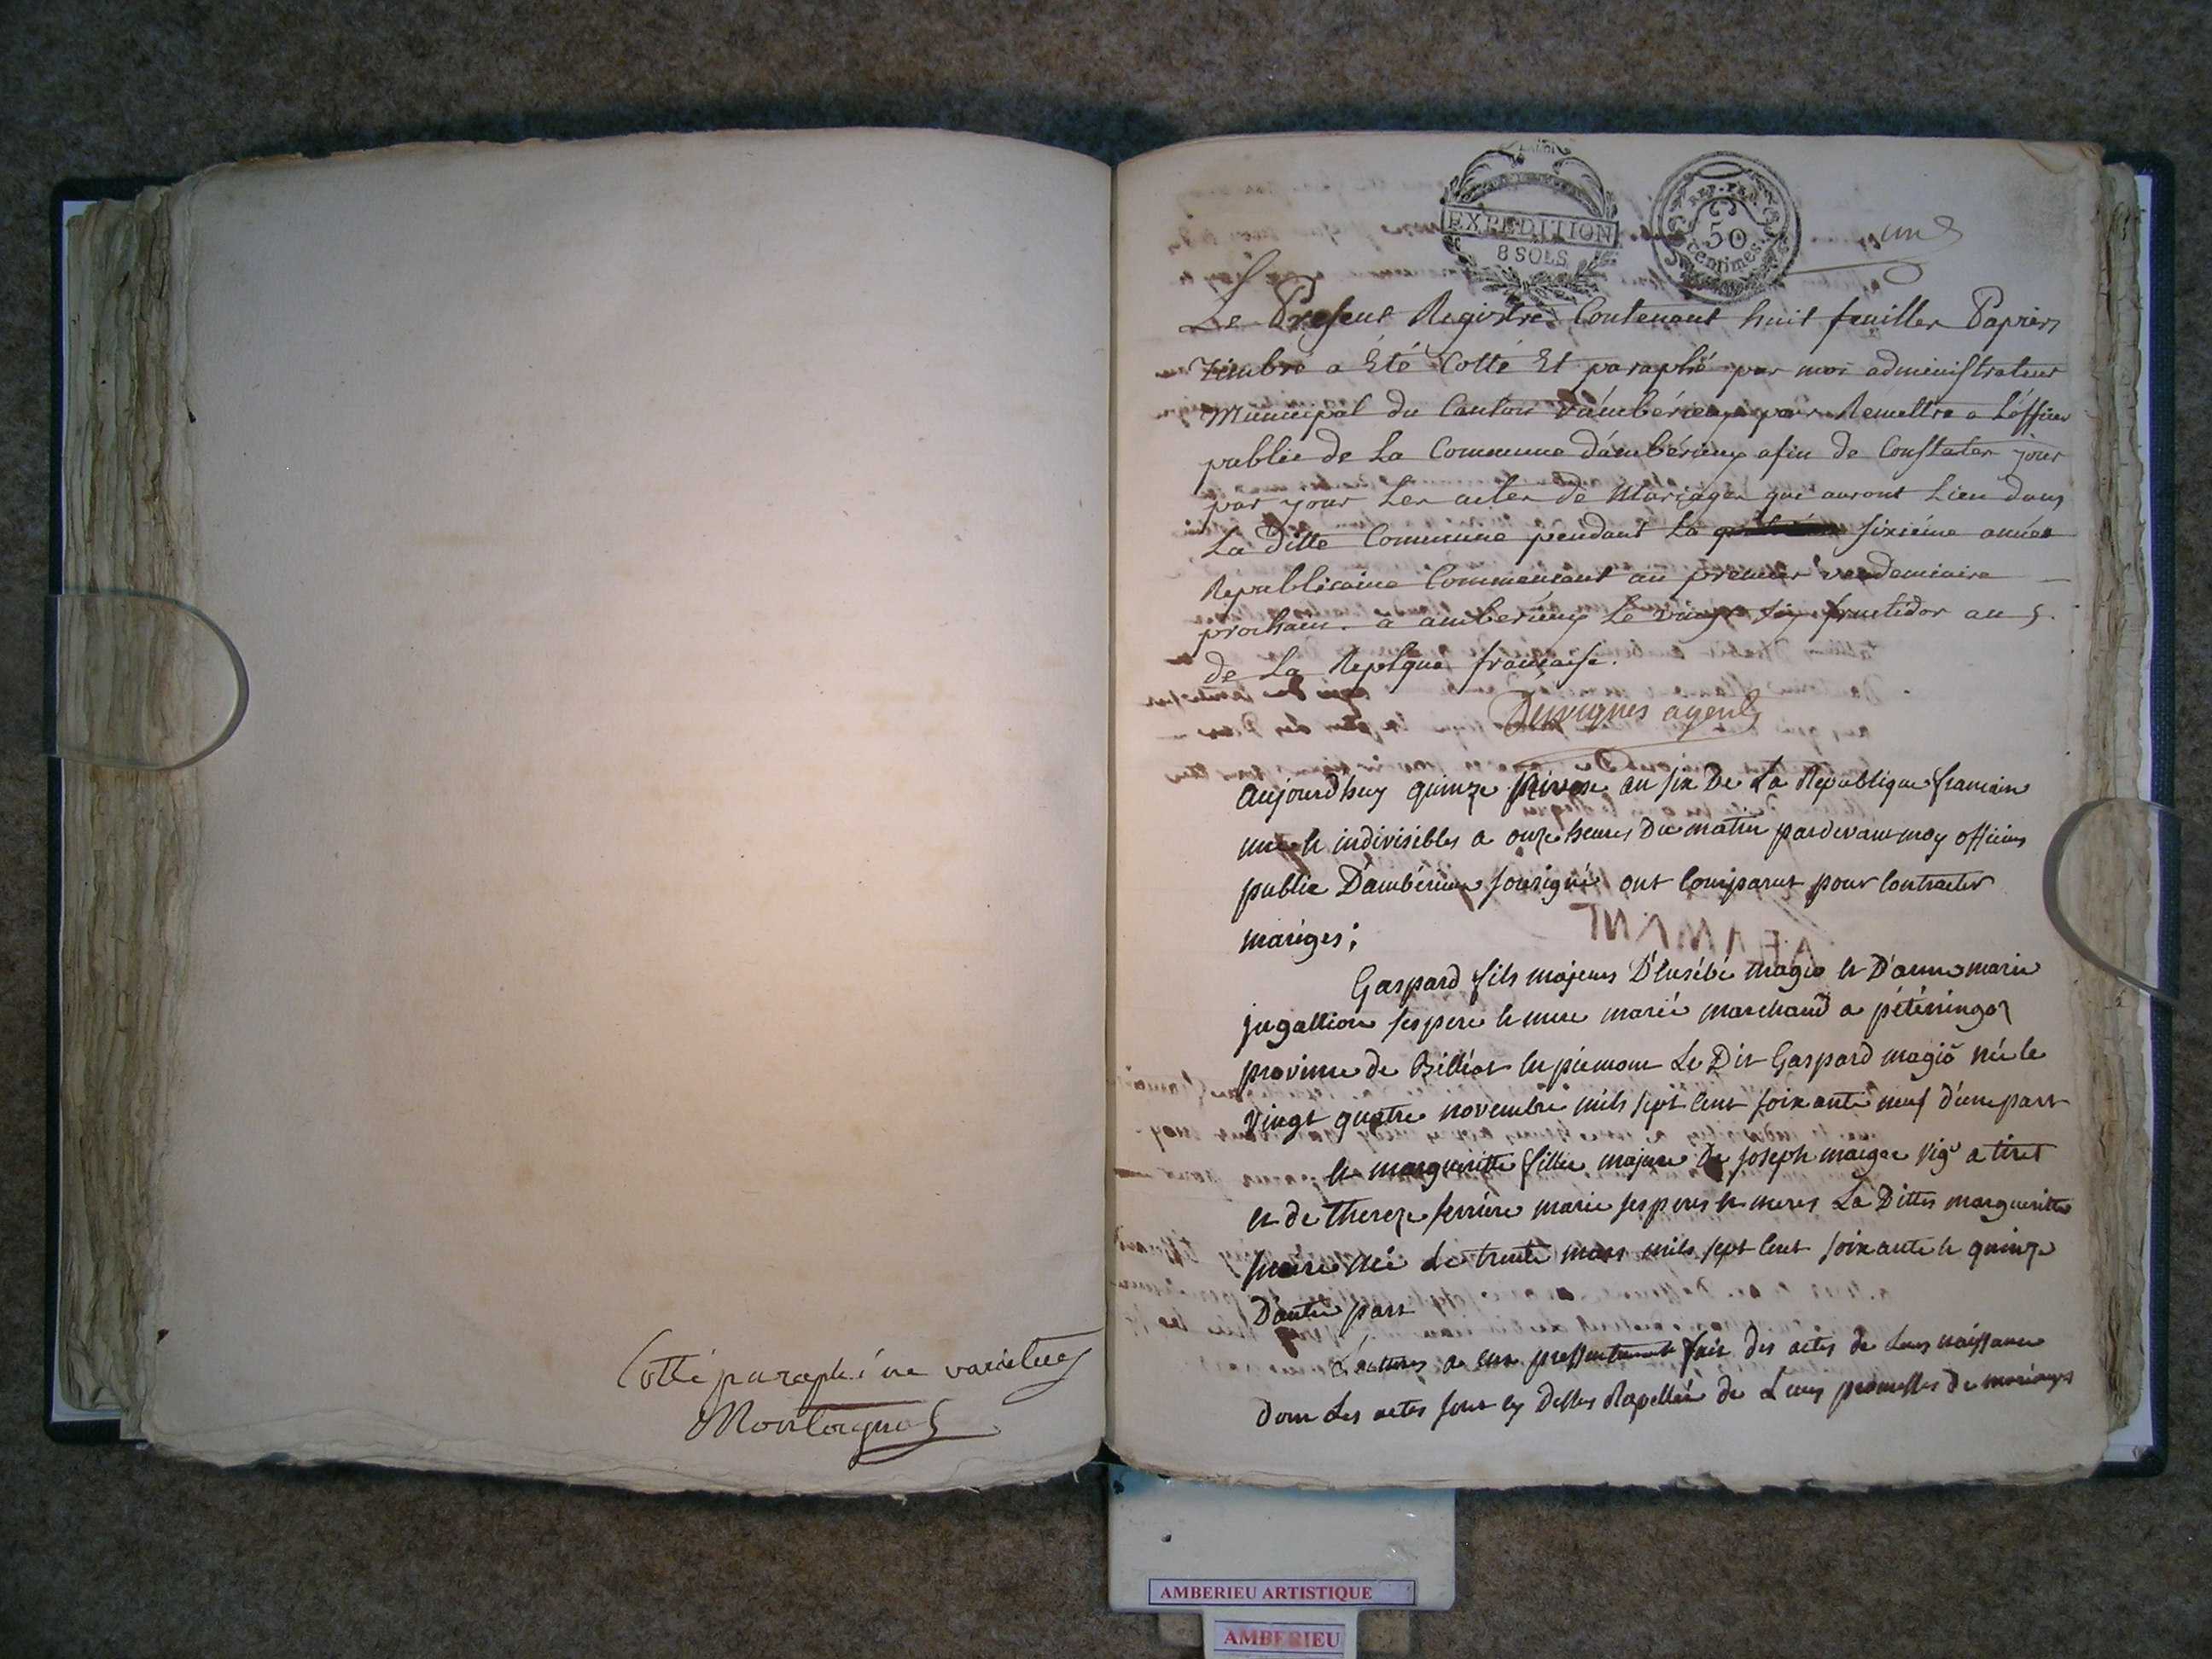 Cotté paraphé ne varietur
Montagnat
EXPEDITION
8 SOLS
REP. FRA.
50
centimes
une
Le Present Registre Contenant huit feuilles Papier
timbré a Eté Cotté Et paraphé par moi administrateur
Municipal du Canton d'ambérieux pour Remettre a L'officier
public de La Commune d'ambérieux afin de Constater jour
par jour Les actes de Mariages qui auront Lieu dans
La ditte Commune pendant La sixiéme année
Republicaine Commencant au premier vendemiaire
prochain. a amberieux Le vingt six fructidor an 5.
de La Repblque française.
Desvignes agent
aujourd'huy quinze nivose an six De La Republique francaise
une et indivisibles a onze heures Du matin pardevant moy officier
public D'ambérieux sousigné ont Comparut pour Contracter
mariges;
NEANT
Gaspard fils majeurs D'Eusébé magio et D'anne marie
jugallion ses pere et mere marié marchand a péténingo
province de Billéat en piemont Le Dit Gaspard magio né le
Vingt quatre novembre mils sept Cent soixante neuf d'une part
et margueritte fillie majure De joseph maigre vigr a tiret
et de Thereze ferriére marie ses peres et meres La Dittes margueritte
née Le trente mars mils sept Cent soixante et quinze
D'autre part
Lectures a eux presentement fait des actes de Leurs naissance
dont Les actes sont cy Desses Rapellée de Leurs promesses de mariages
AMBERIEU ARTISTIQUE
AMBERIEU